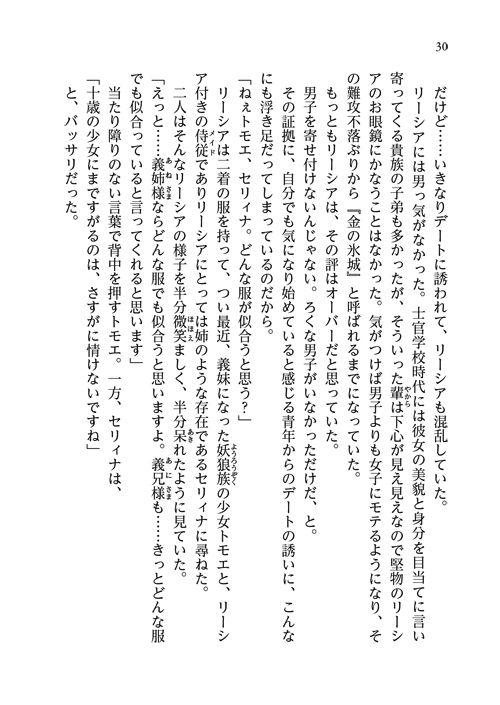 30
だけど……いきなりデートに誘われて、リーシアも混乱していた。
リーシアには男っ気がなかった。士官学校時代には彼女の美貌と身分を目当てに言い
寄ってくる貴族の子弟も多かったが、そういった輩は下心が見え見えなので堅物のリーシ
アのお眼鏡にかなうことはなかった。気がつけば男子よりも女子にモテるようになり、そ
の難攻不落ぶりから『金の氷城』と呼ばれるまでになっていた。
もっともリーシアは、その評はオーバーだと思っていた。
男子を寄せ付けないんじゃない。ろくな男子がいなかっただけだ、と。
その証拠に、自分でも気になり始めていると感じる青年からのデートの誘いに、こんな
にも浮き足だってしまっているのだから。
「ねぇトモエ、セリィナ。どんな服が似合うと思う？」
リーシアは二着の服を持って、つい最近、義妹になった妖狼族の少女トモエと、リーシ
ア付きの侍従でありリーシアにとっては姉のような存在であるセリィナに尋ねた。
二人はそんなリーシアの様子を半分微笑ましく、半分呆れたように見ていた。
「えっと……義姉様ならどんな服でも似合うと思いますよ。義兄様も……きっとどんな服
でも似合っていると言ってくれると思います」
当たり障りのない言葉で背中を押すトモエ。一方、セリィナは、
「十歳の少女にまですがるのは、さすがに情けないですね」
と、バッサリだった。